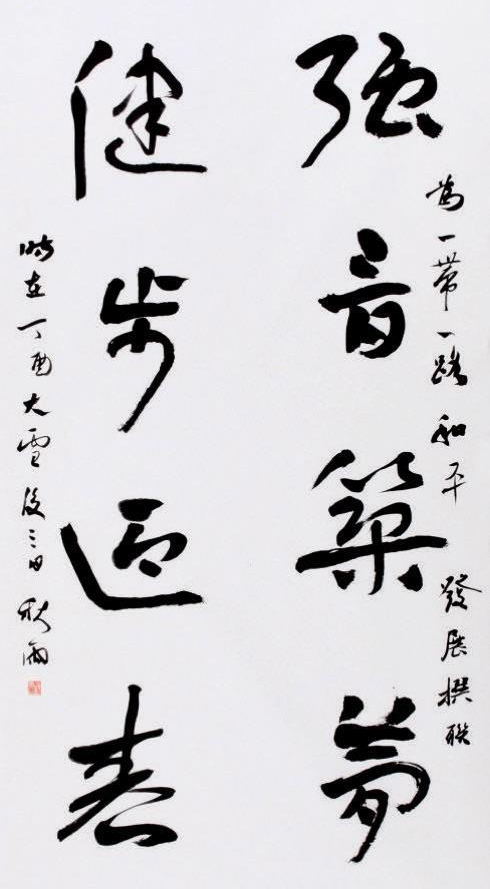 為一帶一路和平發展撰聯
强音築夢
健步迎春
時在丁酉大雪後三日秋雨